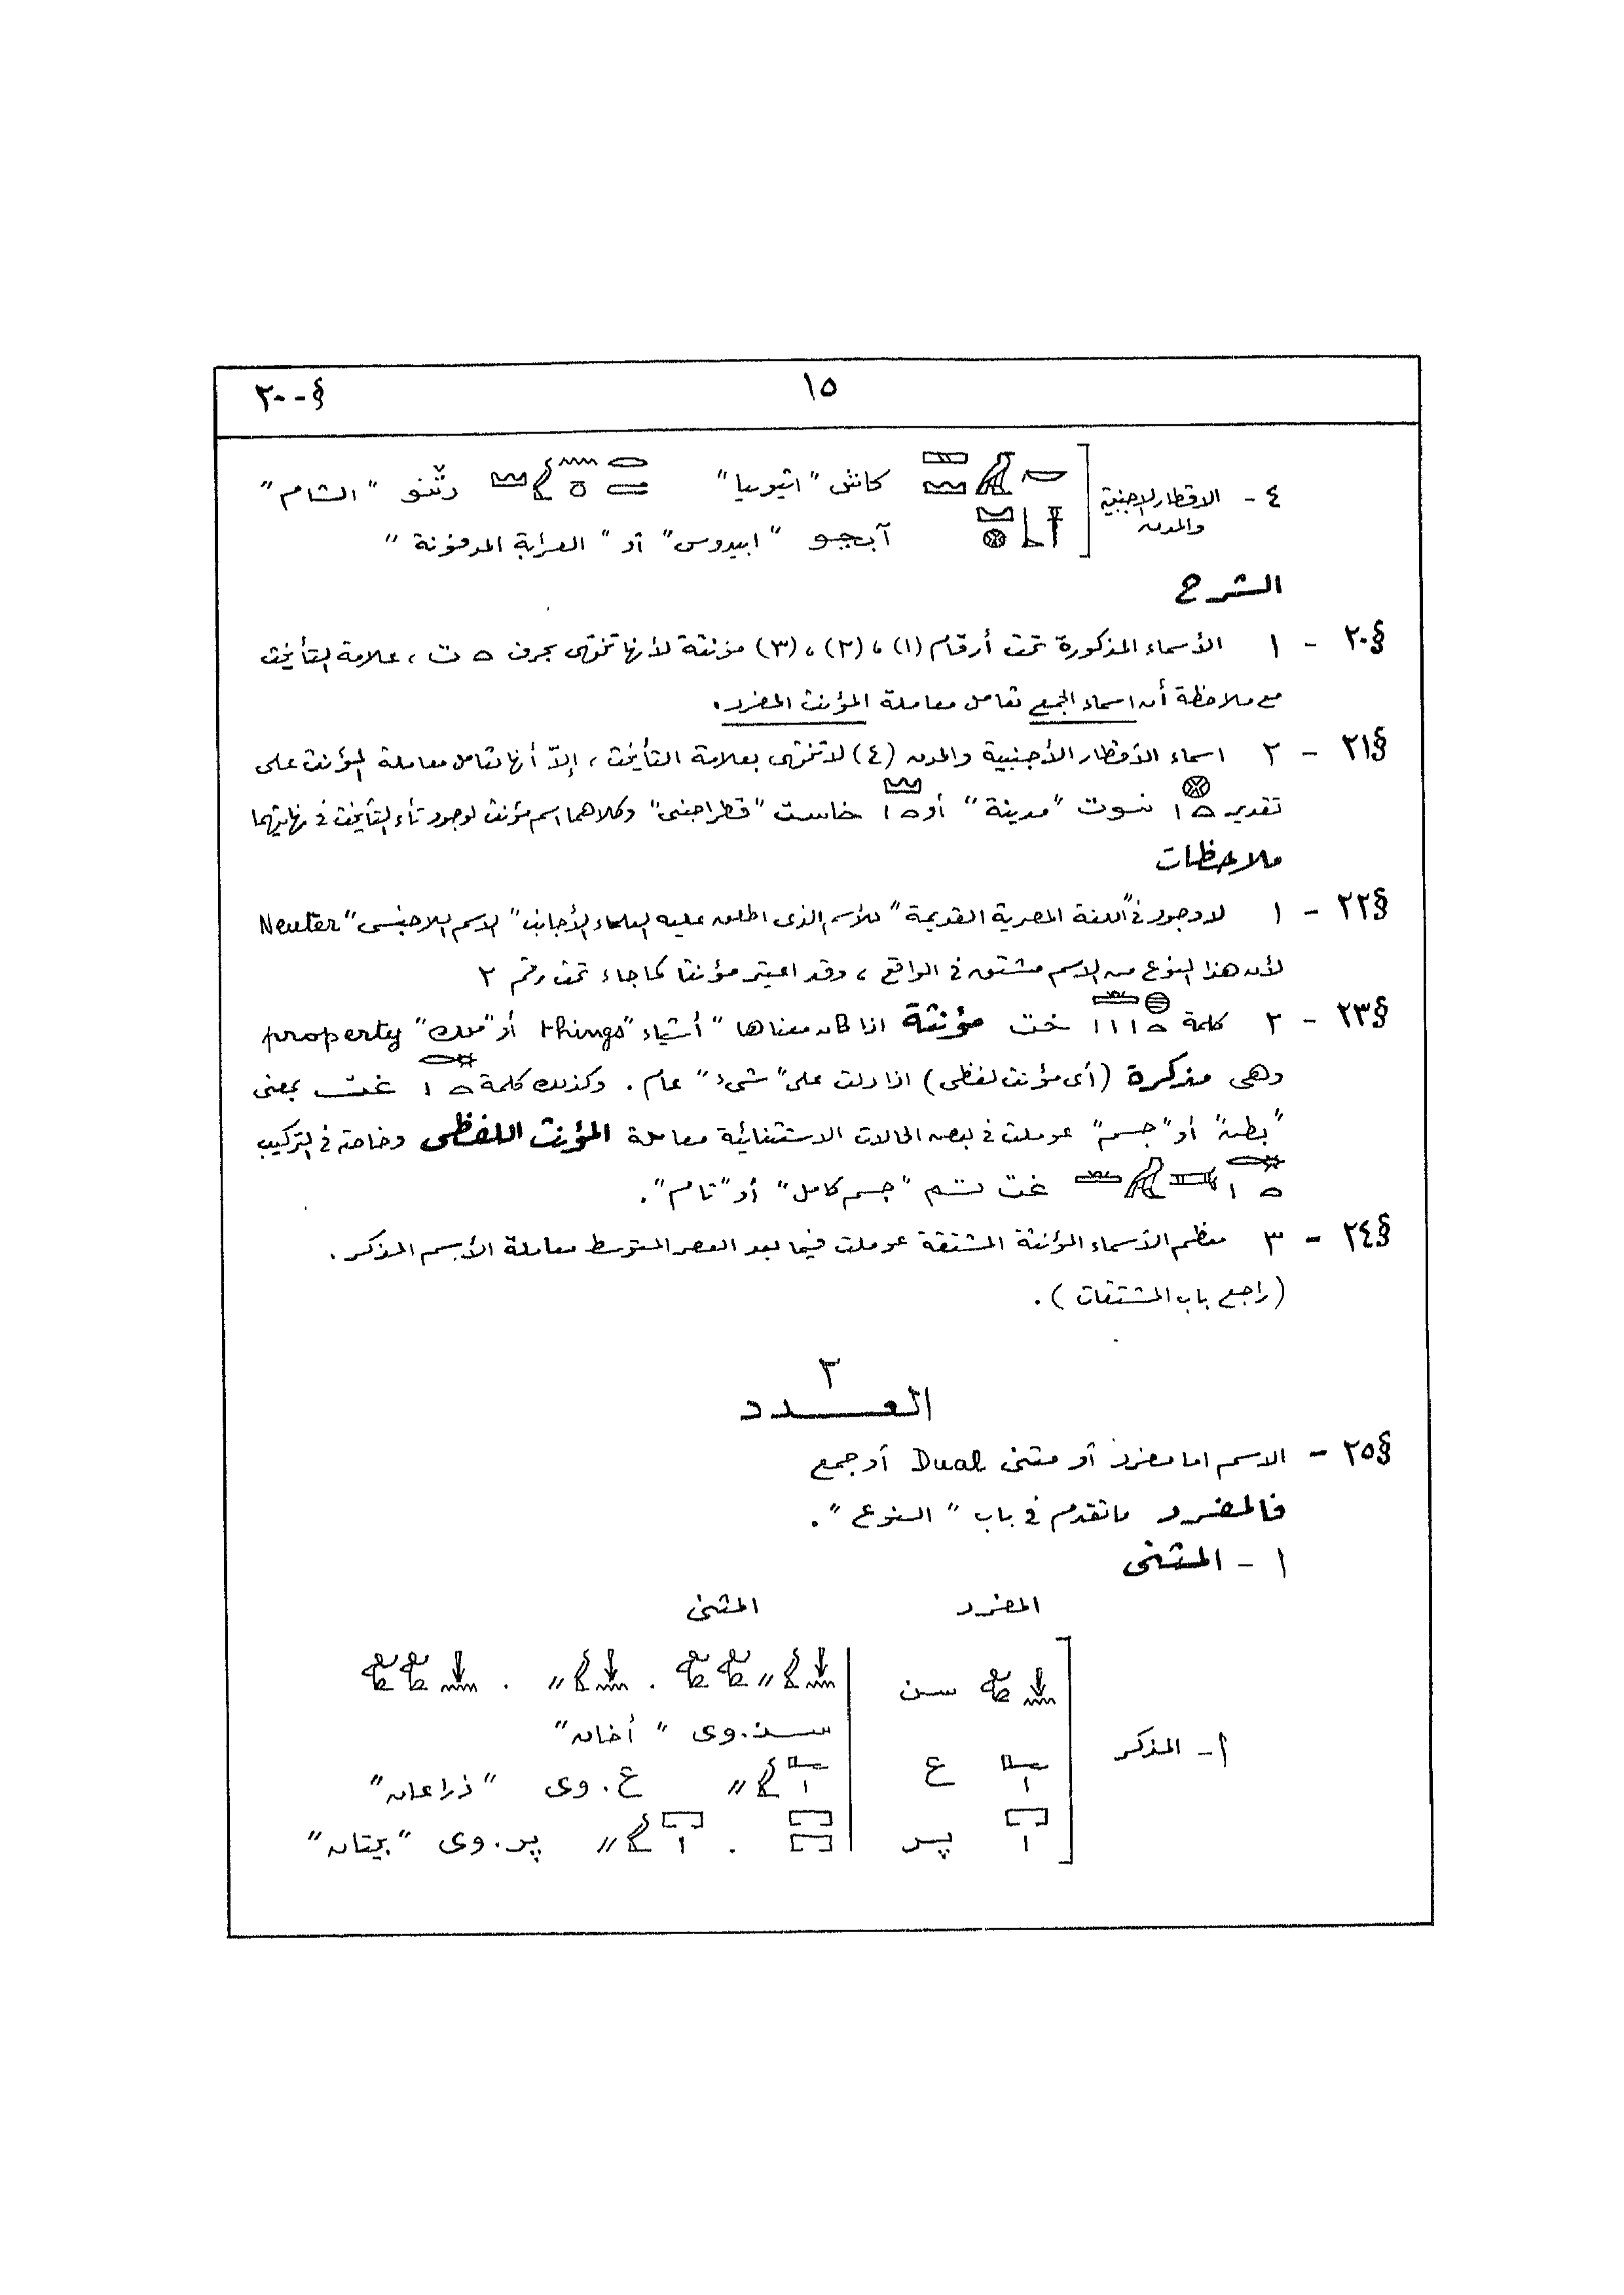 ١٥
§-٢٠
٤ - الاقطار الاجنبية والمدن
كاش "اثيوبيا" رثنو "الشام"
آبجو "ابيدوس" أو "العرابة المدفونة"
الشرح
§٢٠ - ١ الأسماء المذكورة تحت أرقام (١) ، (٢) ، (٣) مؤنثة لأنها تنتهى بحرف 𓏏 ت ، علامة التأنيث
مع ملاحظة أن اسماء الجمع تعامل معاملة المؤنث المفرد.
§٢١ - ٢ اسماء الأقطار الأجنبية والمدن (٤) لا تنتهى بعلامة التأنيث ، إلاّ أنها تعامل معاملة المؤنث على
تقدير 𓊖𓏏𓏤 نسوت "مدينة" أو 𓈉𓏏𓏤 خاست "قطر اجنبى" وكلاهما اسم مؤنث لوجود تاء التأنيث فى نهايتهما
ملاحظات
§٢٢ - ١ لا وجود فى "اللغة المصرية القديمة" للأسم الذى اطلق عليه العلماء الأجانب "الاسم اللاجنسى" Neuter
لأن هذا النوع من الاسم مشتق فى الواقع ، وقد اعتبر مؤنثا كما جاء تحت رقم ٢
§٢٣ - ٢ كلمة 𓐍𓏏𓏛𓏤𓏤𓏤 خت مؤنثة اذا كان معناها "أشياء" things أو "ملك" property
وهى مذكرة (أى مؤنث لفظى) اذا دلت على "شىء" عام . وكذلك كلمة 𓄡𓏏𓏤 غت بمعنى
"بطن" أو "جسم" عوملت فى بعض الحالات الاستثنائية معاملة المؤنث اللفظى وخاصة فى التركيب
𓄡𓏏𓏤 غت تم "جسم كامل" أو "تام".
§٢٤ - ٣ معظم الأسماء المؤنثة المشتقة عوملت فيما بعد العصر المتوسط معاملة الأسم المذكر .
(راجع باب المشتقات) .
٢
العدد
§٢٥ - الاسم اما مفرد أو مثنى Dual أو جمع
فالمفرد ما تقدم فى باب "النوع" .
١ - المثنى
المفرد المثنى
أ - المذكر
سن
سن.وى "أخان"
𓂝𓏤 ع 𓂝𓏤𓅱𓏭 ع.وى "ذراعان"
𓉐𓏤 پر 𓉐𓉐 . 𓉐𓏤𓅱𓏭 پر.وى "بيتان"